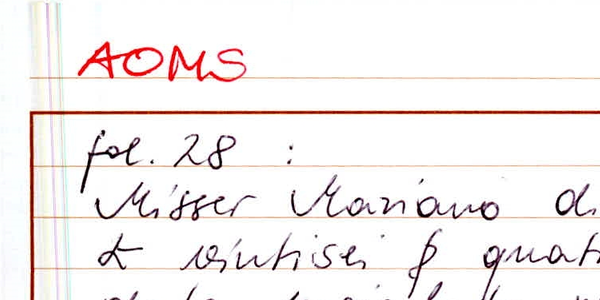 AOMS
fol. 28 :
Misser Mariano di
£ vintisei p quat